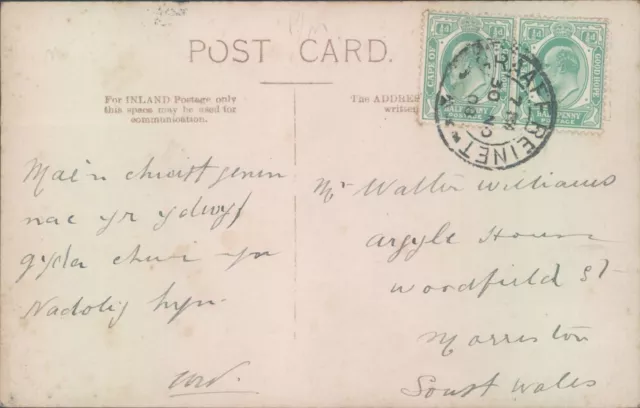 POST CARD.
For INLAND Postage only
this space may be used for
communication.
The ADDRESS
written
CAPE OF
GOOD HOPE
HALF PENNY
POSTAGE
HALF PENNY
POSTAGE
GRAAFF REINET
Mae'n chwith genni
nac yr ydwyf
gyda chwi yn
Nadolig hyn.
Mr Walter Williams
Argyle House
Woodfield St
Morriston
South Wales